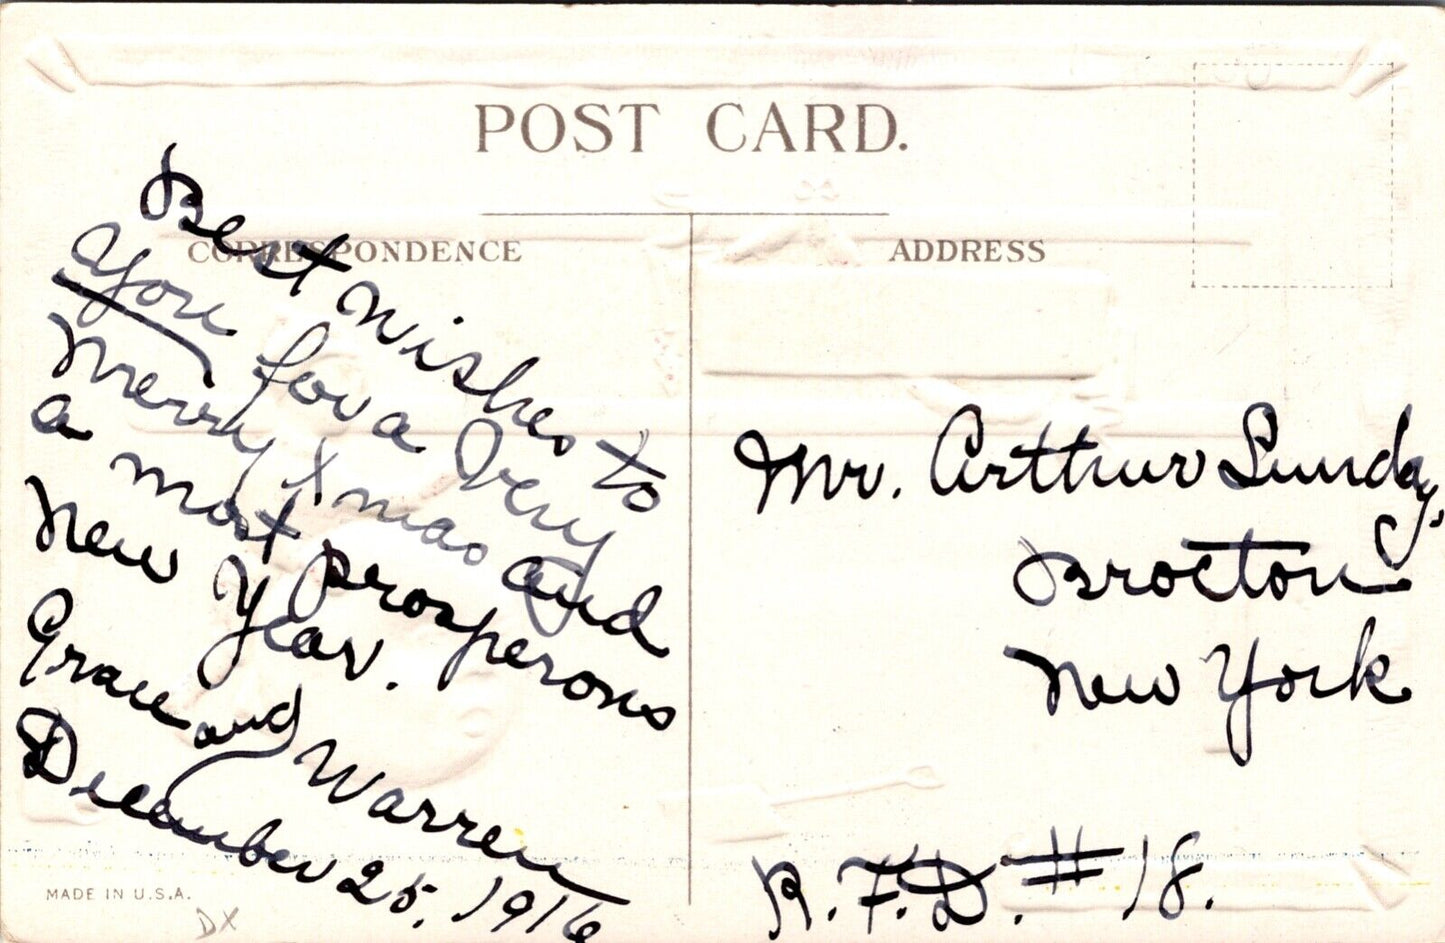 POST CARD.
CORRESPONDENCE
ADDRESS
Best wishes to
you for a very
merry Xmas and
a most prosperous
New Year.
Grace and Warren
December 25, 1916
Mr. Arthur Lunday,
Brocton
New York
R.F.D. #18.
MADE IN U.S.A.
DX